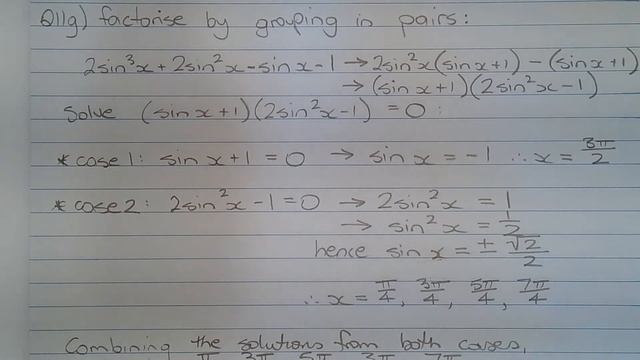 Q11g) factorise by grouping in pairs:
2sin³x + 2sin²x - sin x - 1 → 2sin²x(sin x + 1) - (sin x + 1)
→ (sin x + 1)(2sin²x - 1)
Solve (sin x + 1)(2sin²x - 1) = 0:
* case 1: sin x + 1 = 0 → sin x = -1 ∴ x = 3π/2
* case 2: 2sin²x - 1 = 0 → 2sin²x = 1
→ sin²x = 1/2
hence sin x = ± √2/2
∴ x = π/4, 3π/4, 5π/4, 7π/4
Combining the solutions from both cases,
π 3π 5π 3π 7π